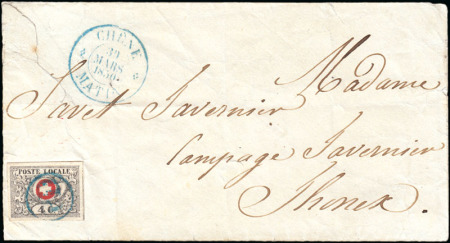 CHÊNE
30
MARS
1850
MAT
Madame
Savet Tavernier
Campage Tavernier
Thonex
POSTE LOCALE